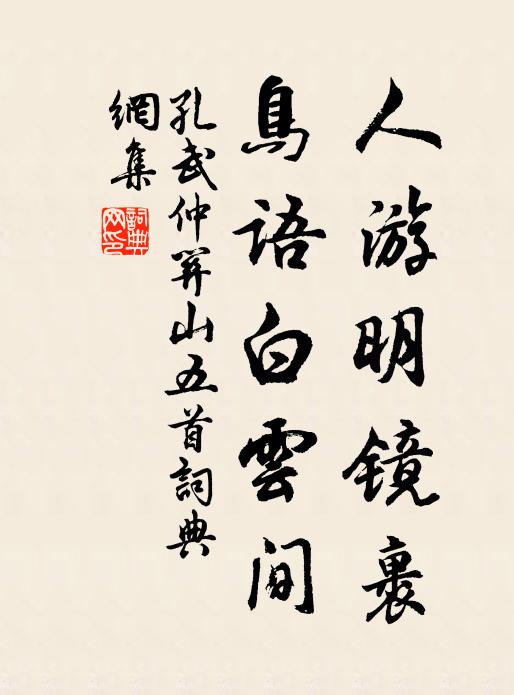 人游明镜裹
鳥語白雲間
孔武仲開山五首詞典
網集
詞典
网印